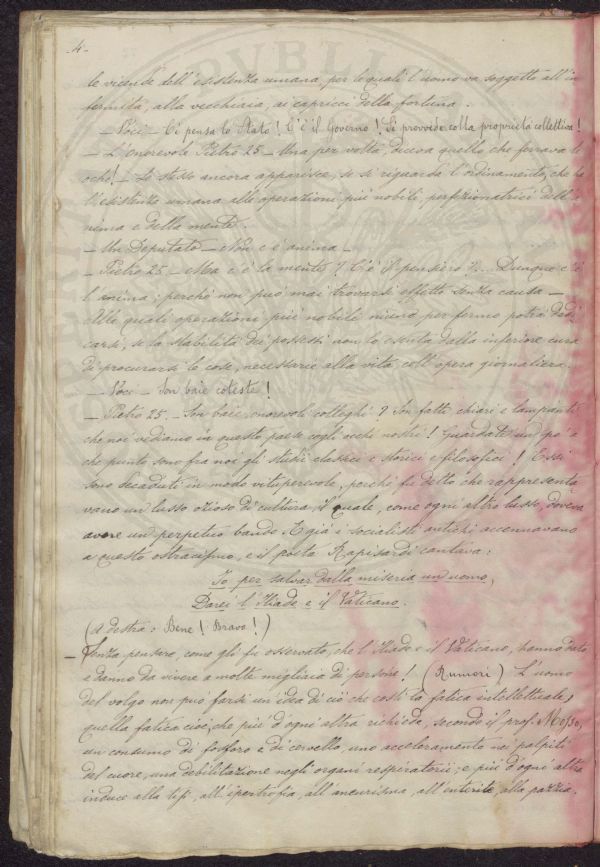 - 4 -
le vicende dell'esistenza umana, per le quali l'uomo va soggetto all'in
fermità, alla vecchiaia, ai capricci della fortuna.
— Voci — Ci pensa lo Stato! C'è il Governo! Si provvede colla proprietà collettiva!
— L'onorevole Pietro 25 — Una per volta, diceva quello che ferrava le
oche! — Lo stesso ancora apparisce, se si riguarda l'ordinamento, che ha
l'esistenza umana alle operazioni più nobili, perfezionatrici dell'a
nima e della mente.
— Un Deputato — Non c'è anima —
— Pietro 25. — Ma c'è la mente? C'è il pensiero?... Dunque c'è
l'anima: perchè non può mai trovarsi effetto senza causa —
Alle quali operazioni più nobili niuno per fermo potrà dedi
carsi, se la stabilità dei possessi non lo esenta dalla inferiore cura
di procurarsi le cose, necessarie alla vita coll'opera giornaliera.
— Voci — Son baie coteste!
— Pietro 25. — Son baie, onorevoli colleghi? Son fatti chiari e lampanti
che noi vediamo in questo paese cogli occhi nostri! Guardate un po' a
che punto sono fra noi gli studii classici e storici e filosofici! Essi
sono decaduti in modo vituperevole, perchè fu detto che rappresenta
vano un lusso ozioso di cultura, il quale, come ogni altro lusso, doveva
avere un perpetuo bando. E già i socialisti antichi accennavano
a questo ostracismo, e il poeta Rapisardi cantava:
Io per salvar dalla miseria un uomo,
Darei l'Iliade e il Vaticano.
(A destra: Bene! Bravo!)
— Senza pensare, come gli fu osservato, che l'Iliade e il Vaticano, hanno dato
e danno da vivere a molte migliaia di persone! (Rumori) L'uomo
del volgo non può farsi un'idea di ciò che costi la fatica intellettuale,
quella fatica cioè, che più d'ogni altra richiede, secondo il prof. Mosso,
un consumo di fosforo e di cervello, uno acceleramento nei palpiti
del cuore, una debilitazione negli organi respiratorii; e più d'ogni altra
induce alla tisi, all'ipertrofia, all'aneurisma, all'enterite, alla pazzia.